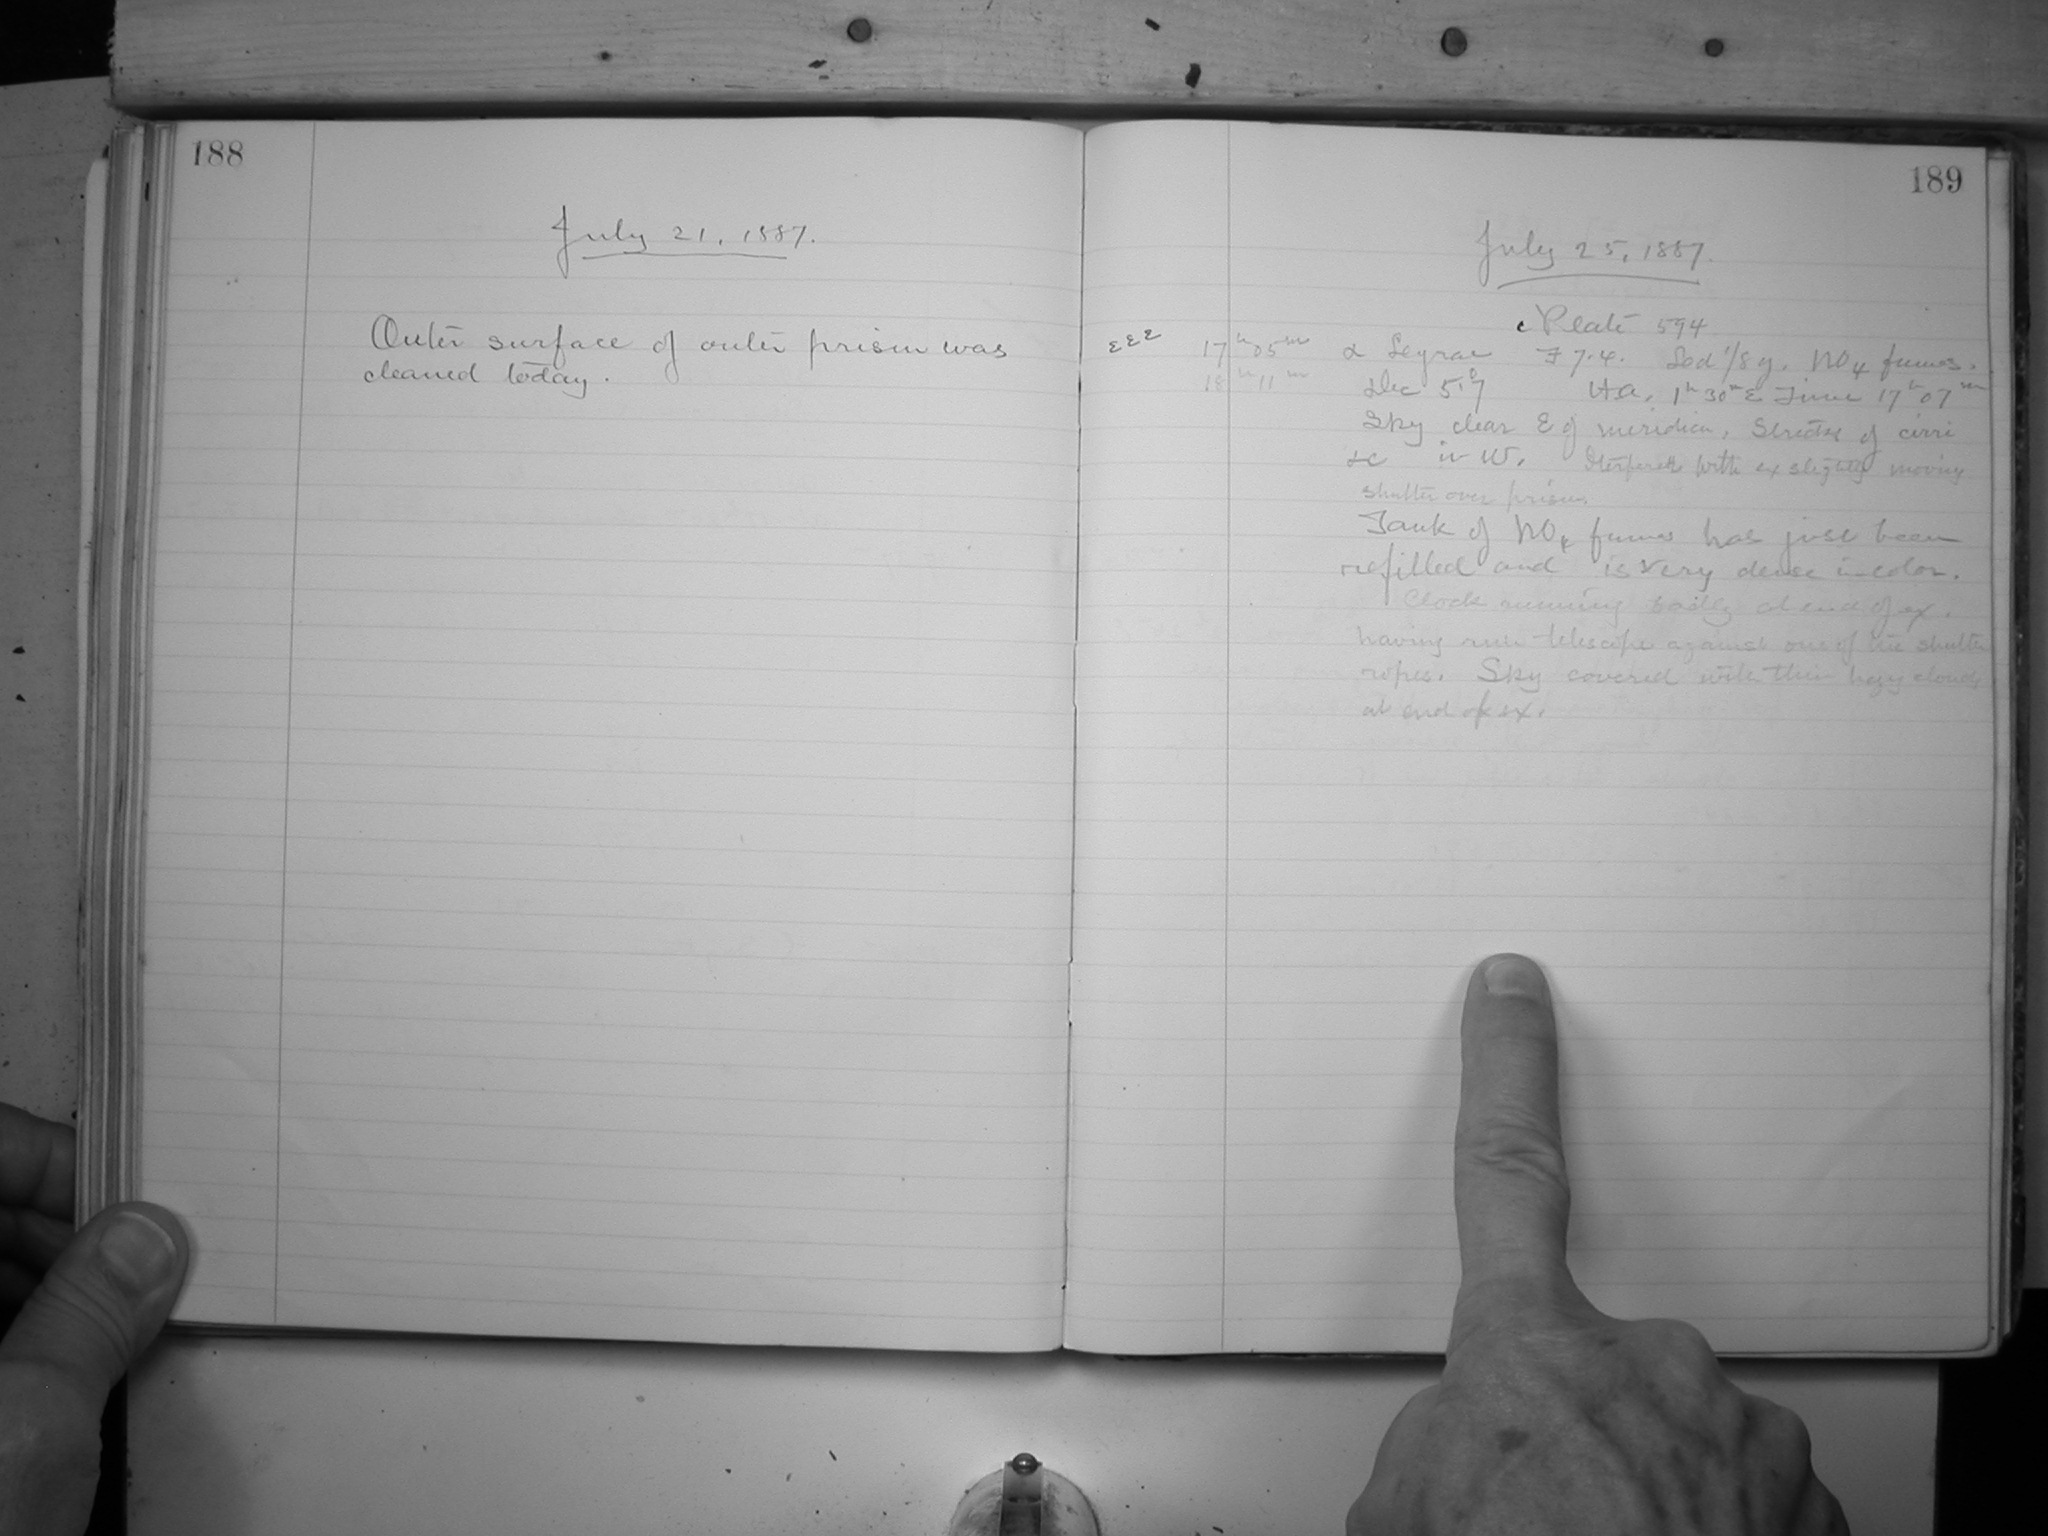 188
July 21, 1887.
Outer surface of outer prism was
cleaned today.
189
July 25, 1887.
c Plate 594
εεε 17h 05m α Lyrae F 7.4. Sed 1/8 y. NO4 fumes.
18h 11m Dec 51.7 H.a. 1h 30m E Time 17h 07m
Sky clear E of meridian. Streaks of cirri
&c in W. Interfered with ex slightly moving
shutter over prism.
Tank of NO4 fumes has just been
refilled and is very dense in color.
Clock running badly at end of ex.
having run telescope against one of the shutter
ropes. Sky covered with thin hazy clouds
at end of ex.